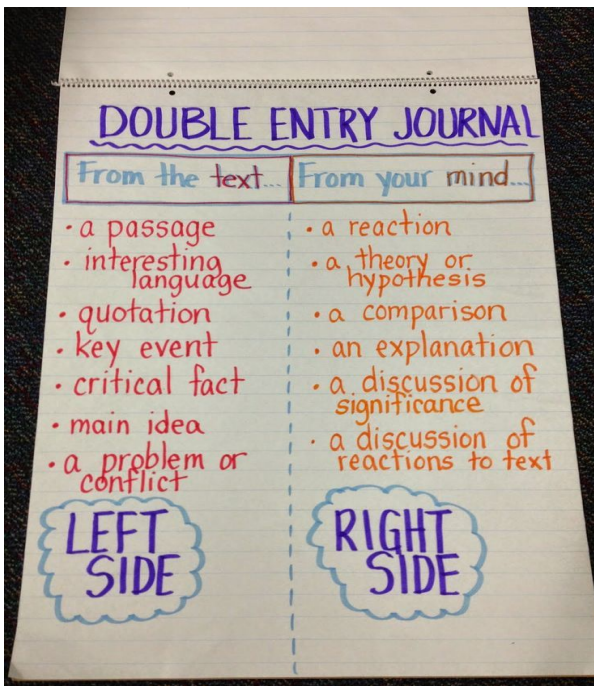 DOUBLE ENTRY JOURNAL
From the text...
• a passage
• interesting
language
• quotation
• key event
• critical fact
• main idea
• a problem or
conflict
LEFT
SIDE
From your mind...
• a reaction
• a theory or
hypothesis
• a comparison
• an explanation
• a discussion of
significance
• a discussion of
reactions to text
RIGHT
SIDE